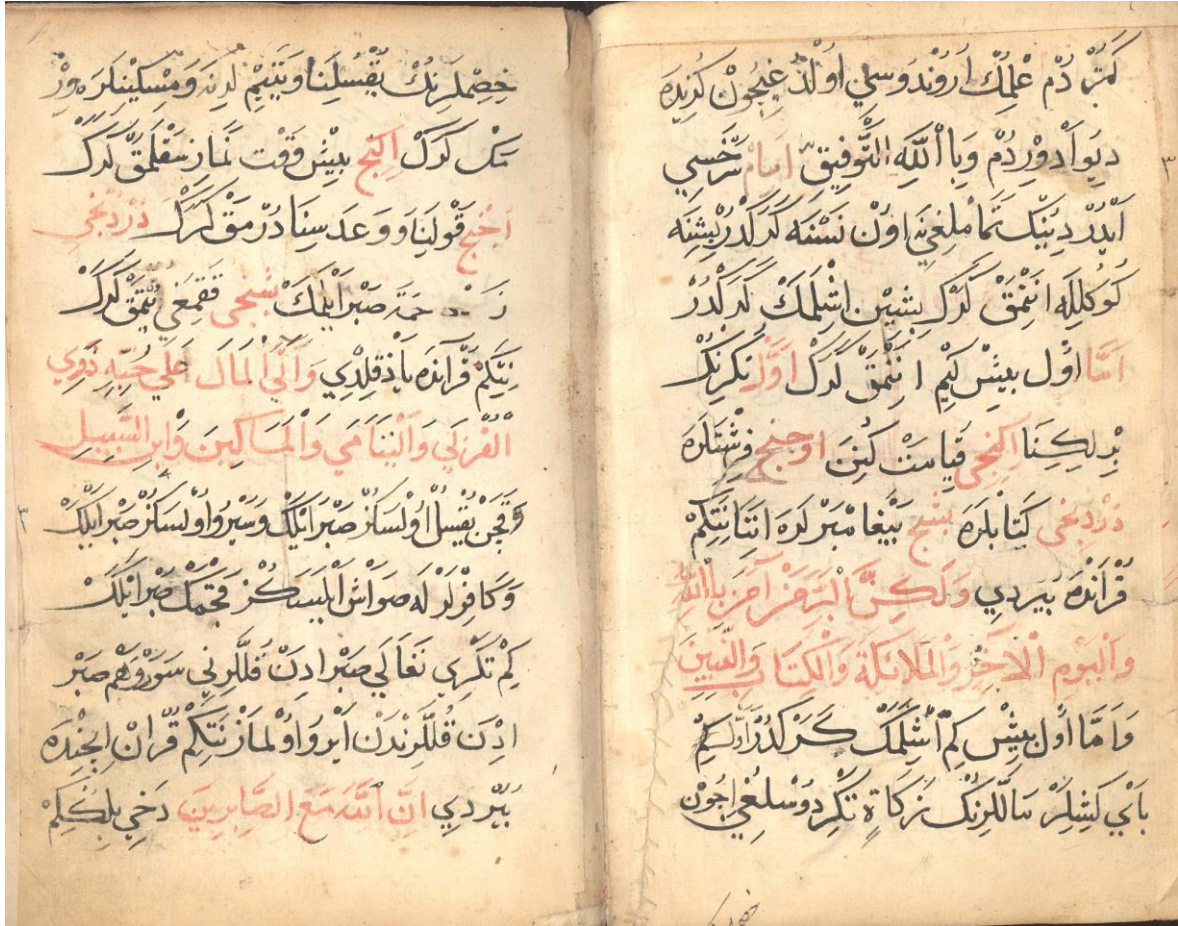 كتردم علمك اروندوسمي اولدغيچون كزيده
ديو ادوردم وبا الله التوفيق امام سرخسي
ايدر دينك تماملغينه اون نسنه كركدر بيشنه
كوكلله اننمق كرك بيشين اشلمك كركدر
امّا اول بيش كيم اننمق كرك اوّل تكرنك
برلكنا اكنجي قيامت كنن اوجنج فرشتلره
دردنجي كتابلره بشنج بيغامبرلره اننا نتكم
قرانده بيردي ولكن البر من آمن بالله
واليوم الاخر والملائكة والكتاب والنبيين
وامّا اول بيش كم اشلمك كركدر اول كم
باي كشلر ماللرنك زكاة تكر دوسلغي اجون
خصملرنك يقسلنا ويتيملرنه ومسكينلره ور
مك كرك اكنج بيش وقت نماز سقلمق كرك
اجنج قولنا و وعدسنا درمق كرك دردنجي
زحمة صبر ايلمك بشنجي قفمغي يتمق كرك
نتكم قرانده ياذ قلدي واتى المال على حبه ذوي
القربى واليتامى والمساكين وابن السبيل
وقچن يقسل اولسكز صبر ايلك وسيرو اولسكز صبر ايلك
وكافرلرله صواش ايلسكز قچممك صبر ايلك
كم تكري تعالى صبر ادن قللرني سور وهم صبر
ادن قللرندن ايرو اولماز نتكم قران ايچنده
بيردي ان الله مع الصابرين دخي بلكلكم